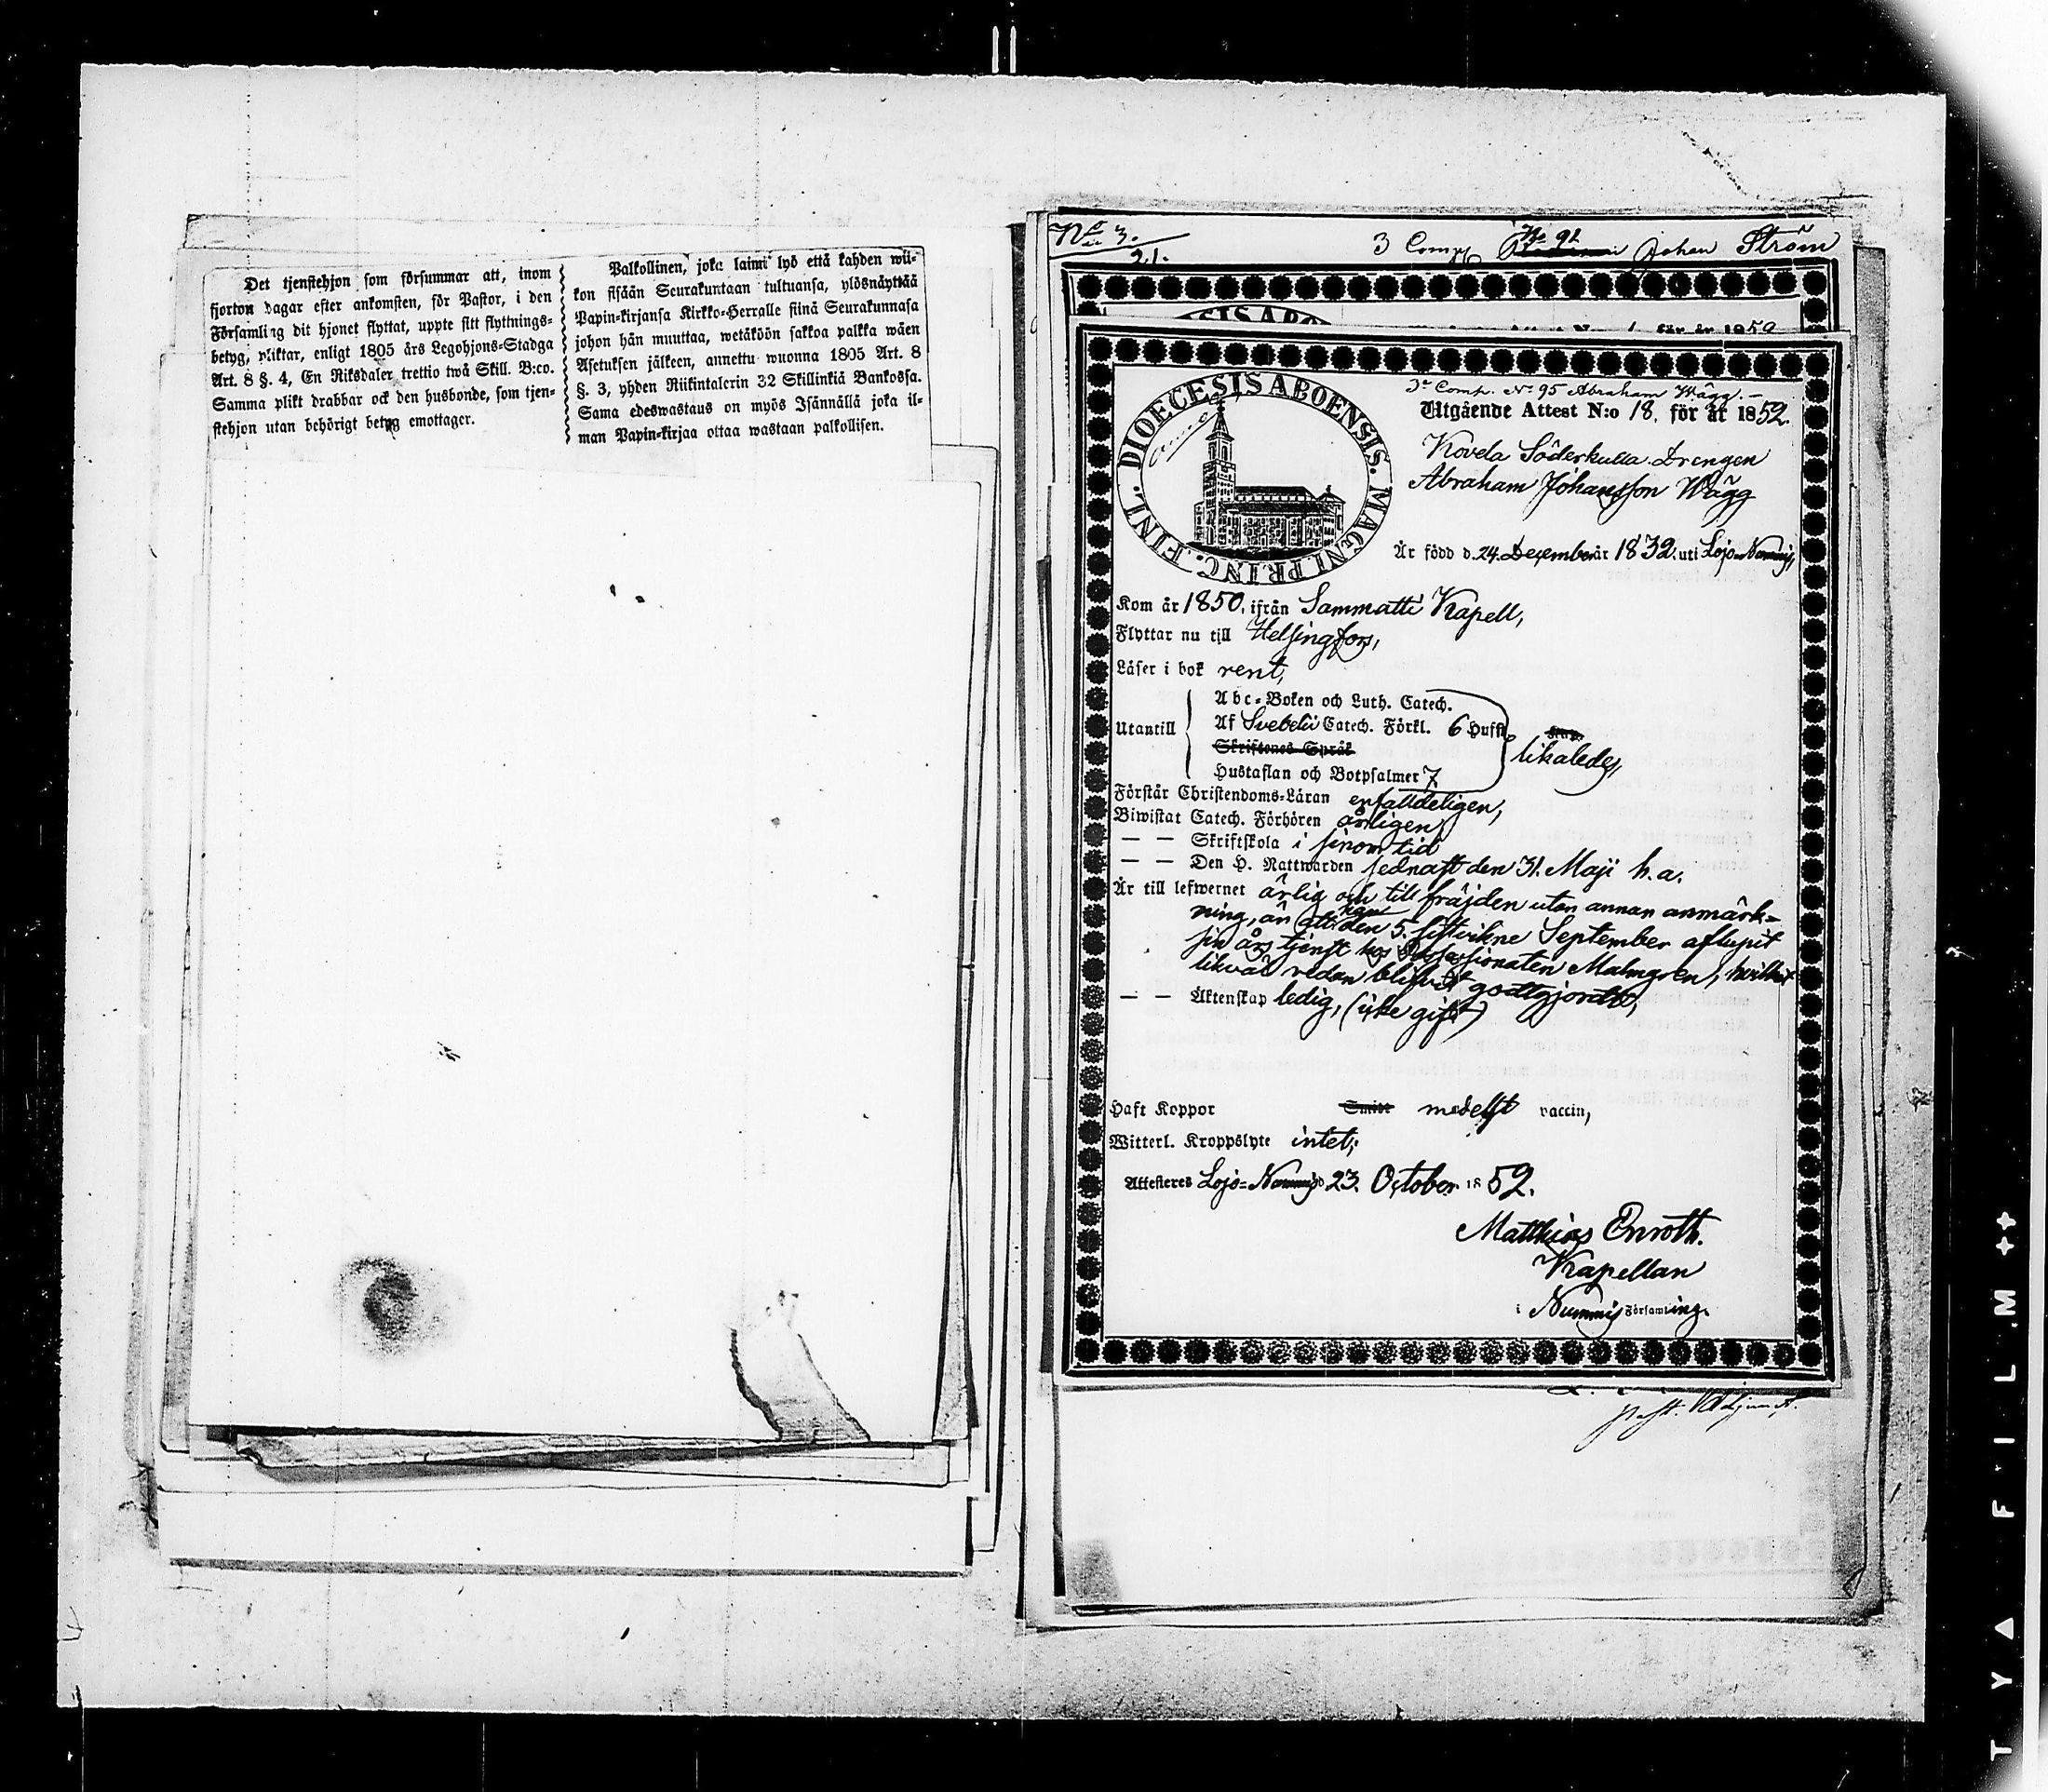 Det tjenstehjon som försummar att, inom
fjorton dagar efter ankomsten, för Pastor, i den
Församling dit hjonet flyttat, uppte sitt flyttnings-
betyg, pliktar, enligt 1805 års Legohjons-Stadga
Art. 8 §. 4, En Riksdaler trettio twå Skill. B:co.
Samma plikt drabbar ock den husbonde, som tjen-
stehjon utan behörigt betyg emottager.
Palkollinen, joka laimi lyö että kahden wii-
kon sisään Seurakuntaan tultuansa, ylösnäyttää
Papin-kirjansa Kirkko-Herralle siinä Seurakunnasa
johon hän muuttaa, wetäköön sakkoa palkka wäen
Asetuksen jälkeen, annettu wuonna 1805 Art. 8
§. 3, yhden Riikintalerin 32 Skillinkiä Bankossa.
Sama edeswastaus on myös Isännällä joka il-
man Papin-kirjaa ottaa wastaan palkollisen.
No 3.
21.
3 Comp No 92 Johan Ström
för år 1852
3e Comp. No 95 Abraham Wägg.
DIOECESIS ABOENSIS. MAGNI PRINC. FINL.
Utgående Attest N:o 18. för år 1852.
Kovela Söderkulla Drengen
Abraham Johansson Wägg
Är född d. 24. December år 1832. uti Lojo-Nummis,
Kom år 1850. ifrån Sammatti Kapell,
Flyttar nu till Helsingfors,
Läser i bok rent,
Abc-Boken och Luth. Catech.
Utantill Af Svebelii Catech. Förkl. 6 Hufst.
Skriftenes Språk
likaledes,
Hustaflan och Botpsalmer 7
Förstår Christendoms-Läran enfaldeligen,
Biwistat Catech. Förhören årligen
— — Skriftskola i sinom tid
— — Den H. Nattwarden sednast den 31. Maji h. a.
Är till lefwernet ärlig och till fräjden utan annan anmärk-
ning, än att han den 5. sistvikne September aflupit
sin års tjenst hos Possessionaten Malmgren, hvilket
likväl redan blifvit godtgjordt,
— — Äktenskap ledig, (icke gift)
Haft Koppor Smitt medelst vaccin,
Witterl. Kroppslyte intet;
Attesteras Lojo-Nummis d 23. October 1852.
Matthias Enroth.
Kapellan
i Nummis Församling.
past. Adjunct.
FILM